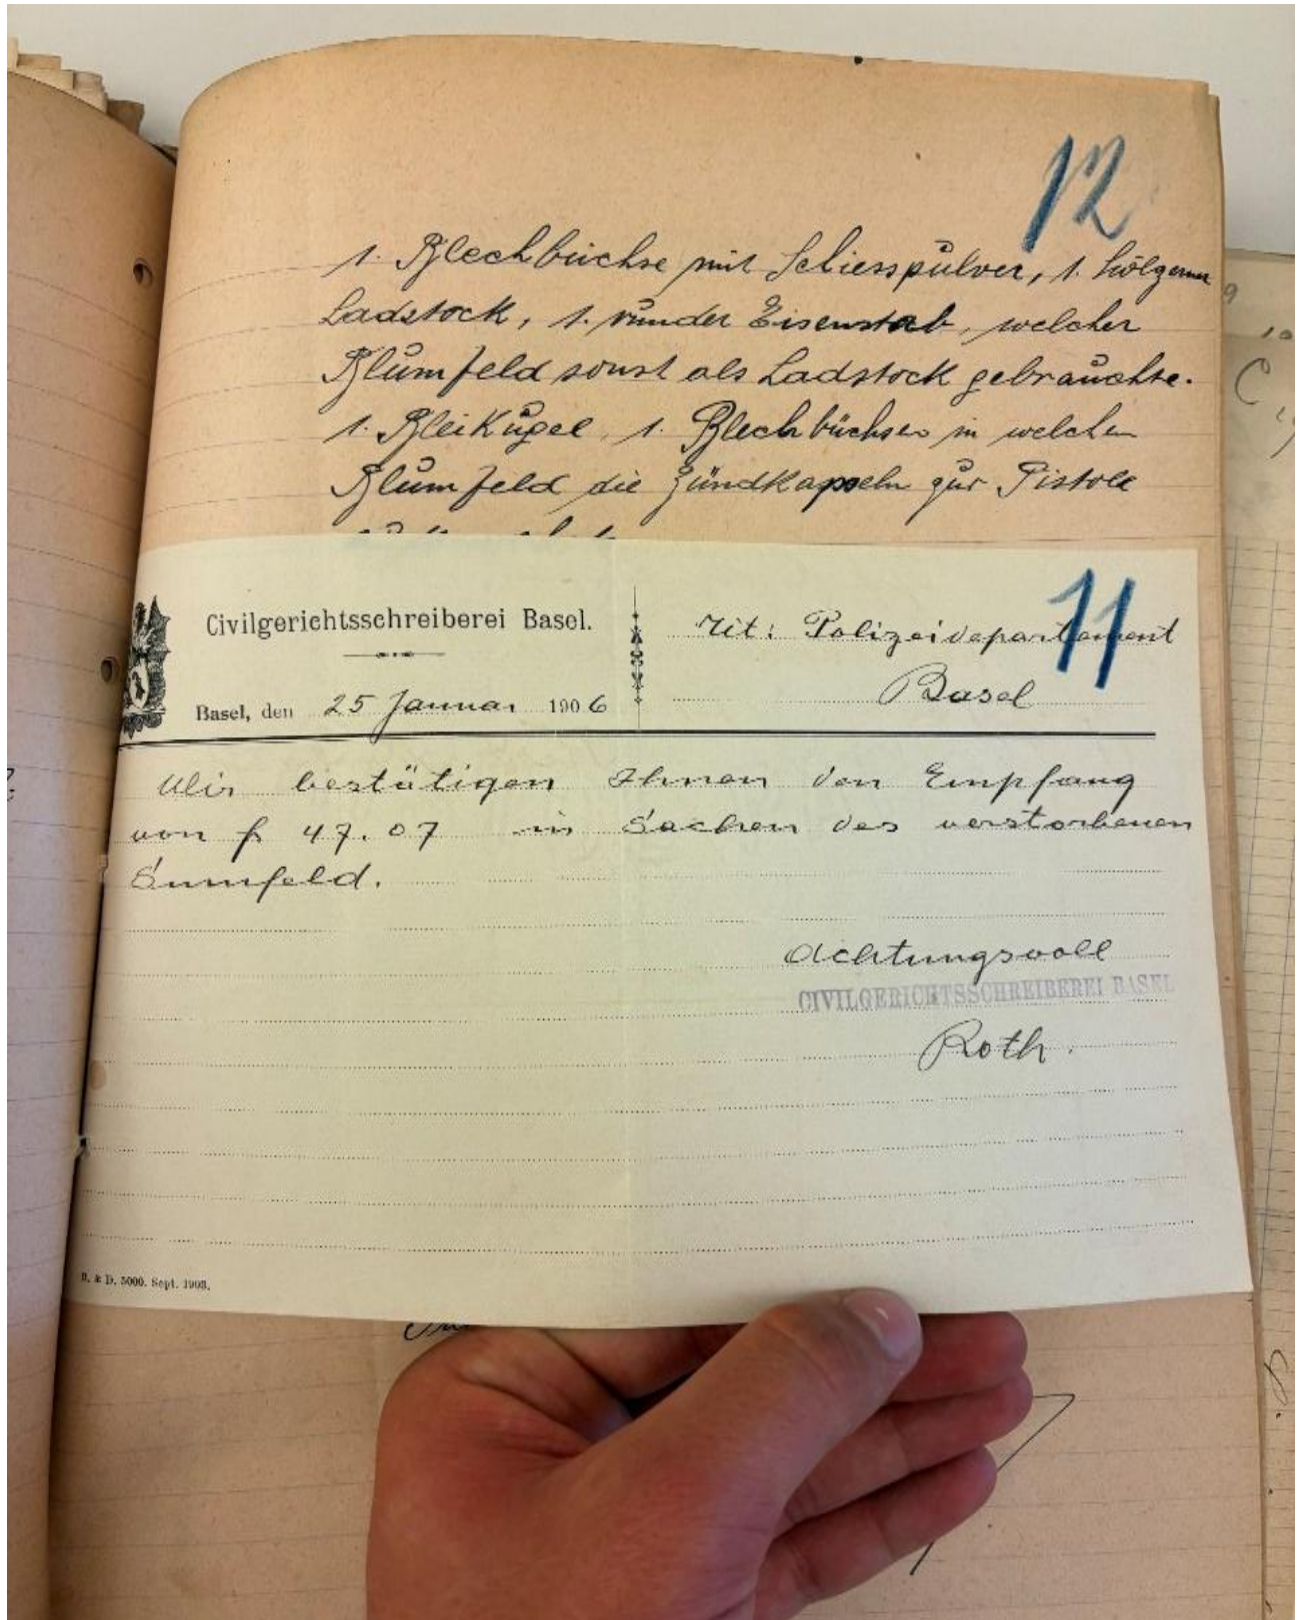 12
1. Blechbüchse mit Schiesspulver, 1. hölzerner
Ladstock, 1. runder Eisenstab, welcher
Blumfeld sonst als Ladstock gebrauchte.
1. Bleikugel, 1. Blechbüchse in welcher
Blumfeld die Zündkapseln zur Pistole
11
Civilgerichtsschreiberei Basel.
Tit: Polizeidepartement
Basel
Basel, den 25 Januar 1906
Wir bestätigen Ihnen den Empfang
von fr 47.07 in Sachen des verstorbenen
Sumfeld.
Achtungsvoll
CIVILGERICHTSSCHREIBEREI BASEL
Roth.
& D. 5000. Sept. 1903.